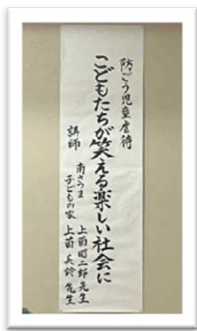 防ごう児童虐待
こどもたちが笑える楽しい社会に
講師
南さつま
子どもの家
上薗昭二郎先生
上薗美鈴先生